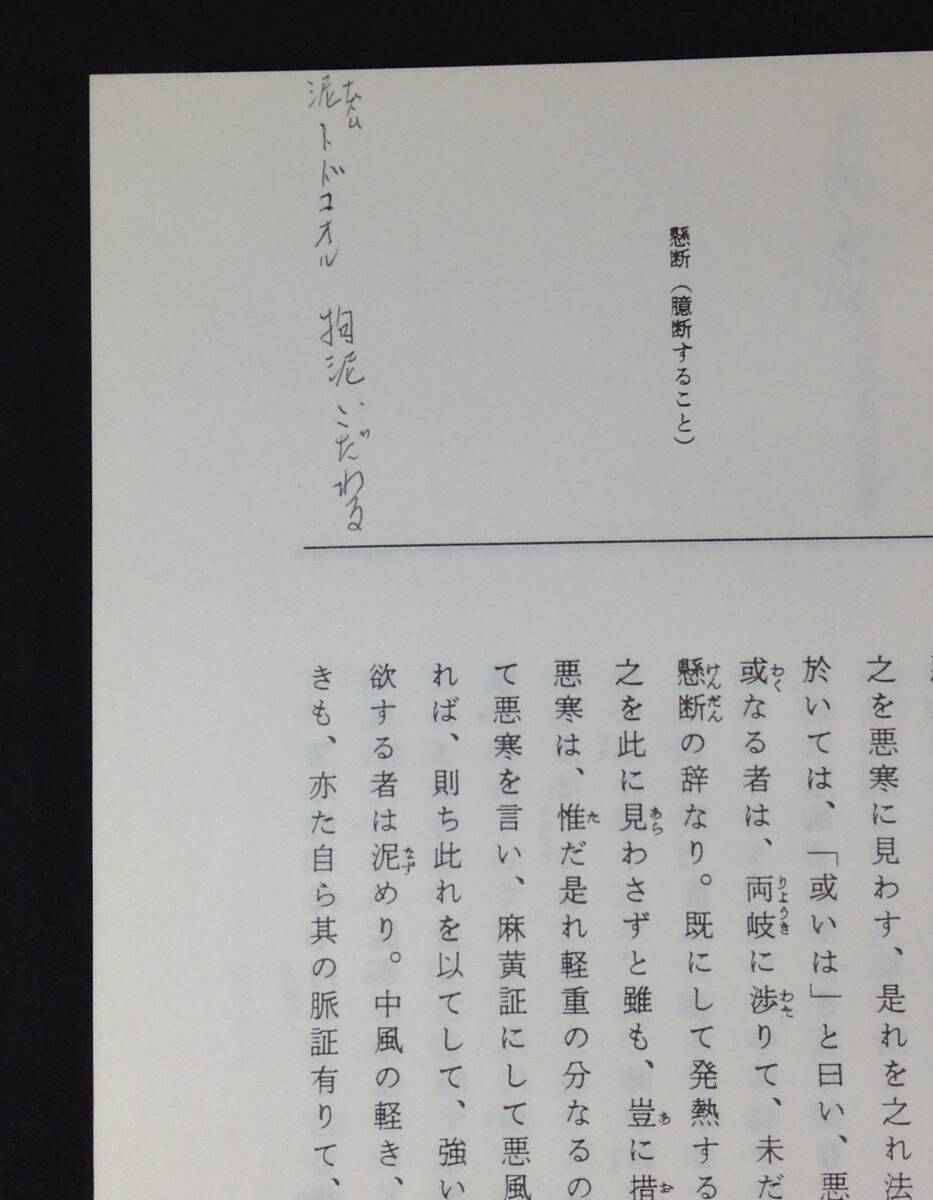 懸断（臆断すること）
泥ナズム トドコオル 拘泥 こだわる
之を悪寒に見わす、是れを之れ法
於いては、「或いは」と曰い、悪
或わくなる者は、両岐りようきに渉わたりて、未だ
懸断けんだんの辞なり。既にして発熱する
之を此に見あらわさずと雖も、豈あに措お
悪寒は、惟ただ是れ軽重の分なるの
て悪寒を言い、麻黄証にして悪風
れば、則ち此れを以てして、強い
欲する者は泥なずめり。中風の軽き、
きも、亦た自ら其の脈証有りて、